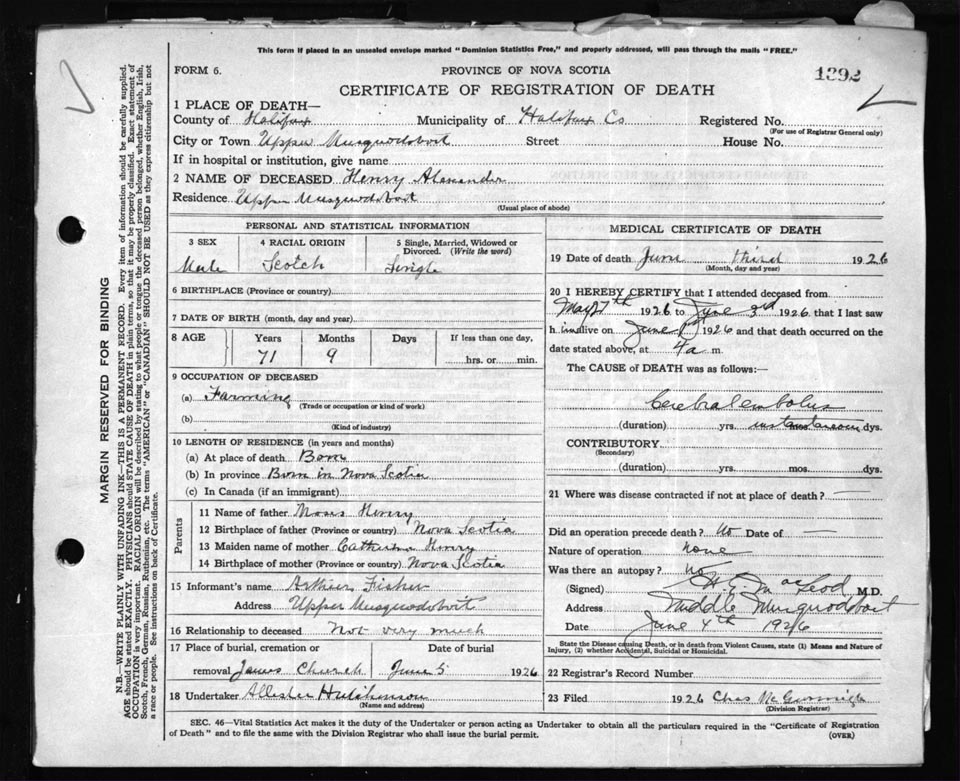 This form if placed in an unsealed envelope marked "Dominion Statistics Free," and properly addressed, will pass through the mails "FREE."
FORM 6.
PROVINCE OF NOVA SCOTIA
1392
CERTIFICATE OF REGISTRATION OF DEATH
1 PLACE OF DEATH—
County of Halifax Municipality of Halifax Co Registered No.
(For use of Registrar General only)
City or Town Upper Musquodoboit Street House No.
If in hospital or institution, give name
2 NAME OF DECEASED Henry Alexander
Residence Upper Musquodoboit
(Usual place of abode)
PERSONAL AND STATISTICAL INFORMATION
3 SEX 4 RACIAL ORIGIN 5 Single, Married, Widowed or Divorced. (Write the word)
Male Scotch Single
6 BIRTHPLACE (Province or country)
7 DATE OF BIRTH (month, day and year)
8 AGE Years Months Days If less than one day,
71 9 hrs. or min.
9 OCCUPATION OF DECEASED
(a) Farming
(Trade or occupation or kind of work)
(b)
(Kind of industry)
10 LENGTH OF RESIDENCE (in years and months)
(a) At place of death Born
(b) In province Born in Nova Scotia
(c) In Canada (if an immigrant)
Parents
11 Name of father Moses Henry
12 Birthplace of father (Province or country) Nova Scotia
13 Maiden name of mother Catherine Henry
14 Birthplace of mother (Province or country) Nova Scotia
15 Informant's name Arthur Fisher
Address Upper Musquodoboit
16 Relationship to deceased Not very much
17 Place of burial, cremation or Date of burial
removal James Church June 5 1926
18 Undertaker Allister Hutchinson
(Name and address)
MEDICAL CERTIFICATE OF DEATH
19 Date of death June third 1926
(Month, day and year)
20 I HEREBY CERTIFY that I attended deceased from
May 27th 1926 to June 3rd 1926 that I last saw
h im alive on June 1926 and that death occurred on the
date stated above, at 4 a m.
The CAUSE of DEATH was as follows:—
Cerebral embolus
(duration) yrs. mos. instantaneous dys.
CONTRIBUTORY
(Secondary)
(duration) yrs. mos. dys.
21 Where was disease contracted if not at place of death? —
Did an operation precede death? No Date of —
Nature of operation none
Was there an autopsy? no
(Signed) McLeod M.D.
Address Middle Musquodoboit
Date June 4th 1926
State the Disease causing Death, or in death from Violent Causes, state (1) Means and Nature of
Injury, (2) whether Accidental, Suicidal or Homicidal.
22 Registrar's Record Number
23 Filed 1926 Chas
(Division Registrar)
SEC. 46—Vital Statistics Act makes it the duty of the Undertaker or person acting as Undertaker to obtain all the particulars required in the "Certificate of Registration
of Death" and to file the same with the Division Registrar who shall issue the burial permit. (OVER)
MARGIN RESERVED FOR BINDING
N.B.—WRITE PLAINLY WITH UNFADING INK—THIS IS A PERMANENT RECORD. Every item of information should be carefully supplied.
AGE should be stated EXACTLY. PHYSICIANS should STATE CAUSE OF DEATH in plain terms, so that it may be properly classified. Exact statement of
OCCUPATION is very important. RACIAL ORIGIN will be described by stating to what people or tongue the deceased person belonged, whether English, Irish,
Scotch, French, German, Russian, Ruthenian, etc. The terms "AMERICAN" or "CANADIAN" SHOULD NOT BE USED as they express citizenship but not
a race or people. See instructions on back of Certificate.